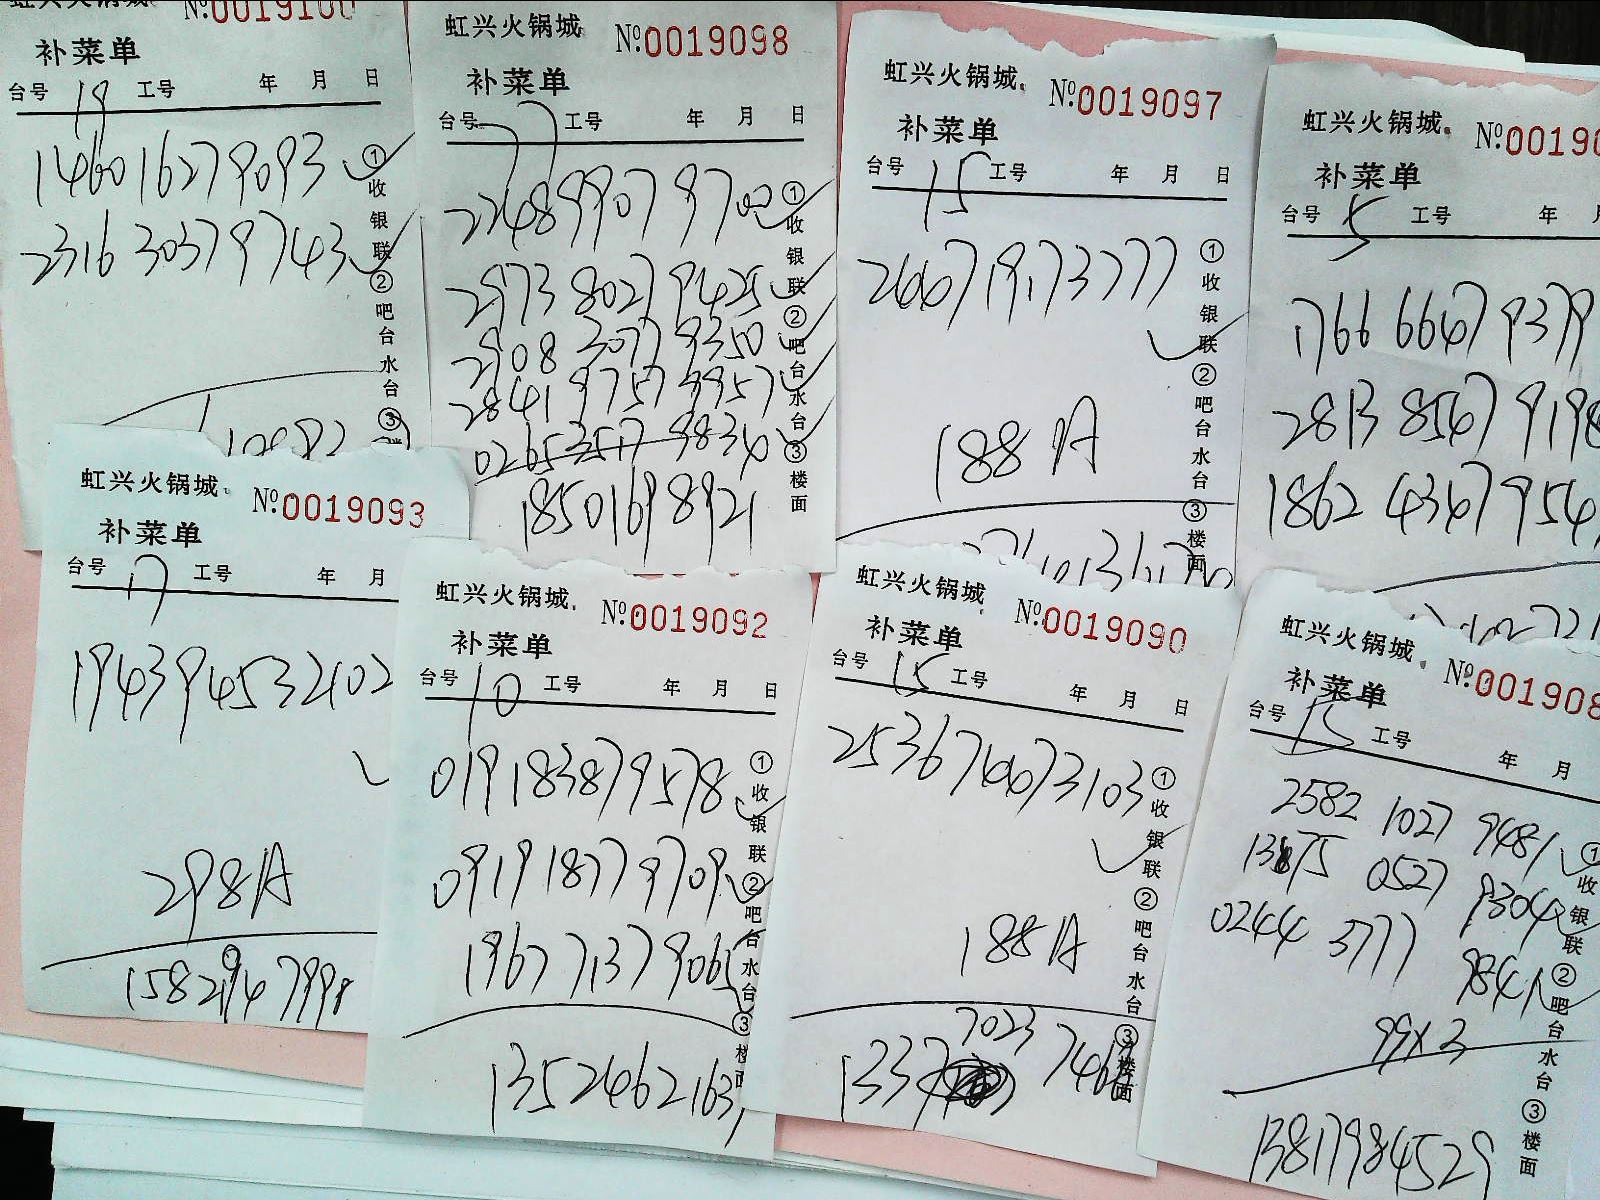 № 0019100
补菜单
台号 19 工号 年 月 日
146016279093
231630379743
①收银联②吧台水台③
虹兴火锅城 №0019098
补菜单
台号 77 工号 年 月 日
2248 9907 9700
2973 8027 9425
2908 3077 9350
2841 9757 9957
0265 3517 9834
18501698921
①收银联②吧台水台③楼面
虹兴火锅城. №0019097
补菜单
台号 15 工号 年 月 日
266719173777
188 A
①收银联②吧台水台③楼面
虹兴火锅城. №00190
补菜单
台号 5 工号 年
1766 6647 9379
2813 8567 9198
1862 4367 954
虹兴火锅城. №0019093
补菜单
台号 17 工号 年 月
194394532102
298A
虹兴火锅城. №0019092
补菜单
台号 10 工号 年 月 日
019183879578
091918779709
196771379065
1352462163
①收银联②吧台水台③楼面
虹兴火锅城. №0019090
补菜单
台号 15 工号 年 月 日
253676673103
188A
7023
1337 746
①收银联②吧台水台③楼面
虹兴火锅城. №001908
补菜单
台号 15 工号 年 月
2582 1027 9481
13875 0527 9304
0244 3777 9841
99x3
13817984529
①收银联②吧台水台③楼面